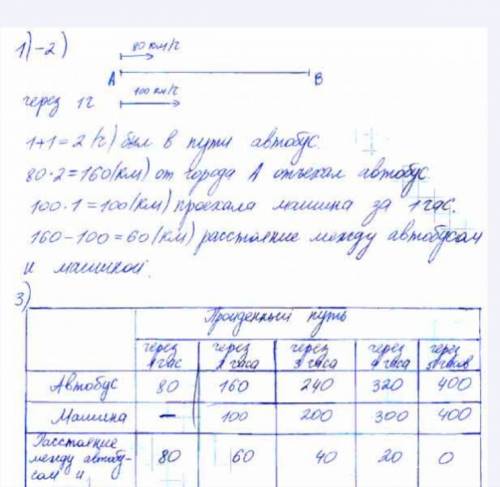 1)-2)
80 км/ч
А В
через 1ч 100 км/ч
1+1=2 (ч) был в пути автобус.
80·2=160 (км) от города А отъехал автобус.
100·1=100 (км) проехала машина за 1 час.
160-100=60 (км) расстояние между автобусом
и машиной.
3)
Пройденный путь
через 1 час через 2 часа через 3 часа через 4 часа через 5 часов
Автобус 80 160 240 320 400
Машина — 100 200 300 400
Расстояние
между автобу-
сом и 80 60 40 20 0